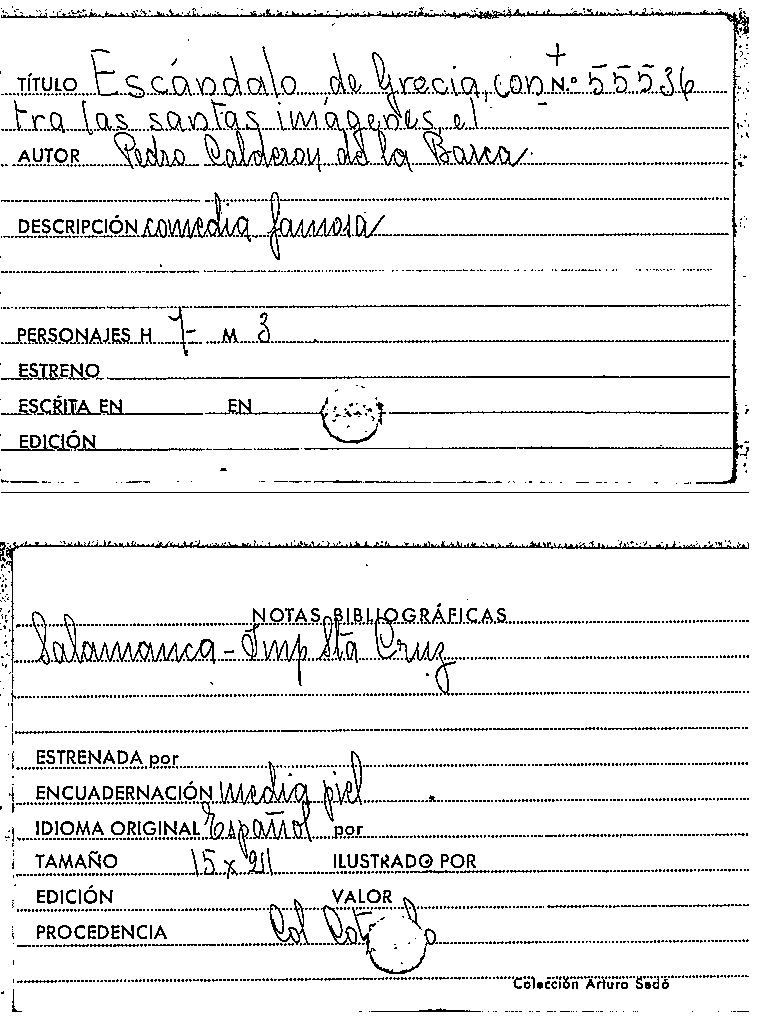 TÍTULO Escándalo de Grecia, con N.º 55536
tra las santas imágenes, el
AUTOR Pedro Calderon de la Barca
DESCRIPCIÓN comedia famosa
PERSONAJES H 7 M 3
ESTRENO
ESCRITA EN EN
EDICIÓN
NOTAS BIBLIOGRÁFICAS
Salamanca - Imp Sta Cruz
ESTRENADA por
ENCUADERNACIÓN media piel
IDIOMA ORIGINAL Español por
TAMAÑO 15 x 211 ILUSTRADO POR
EDICIÓN VALOR
PROCEDENCIA Col
Colección Arturo Sedó